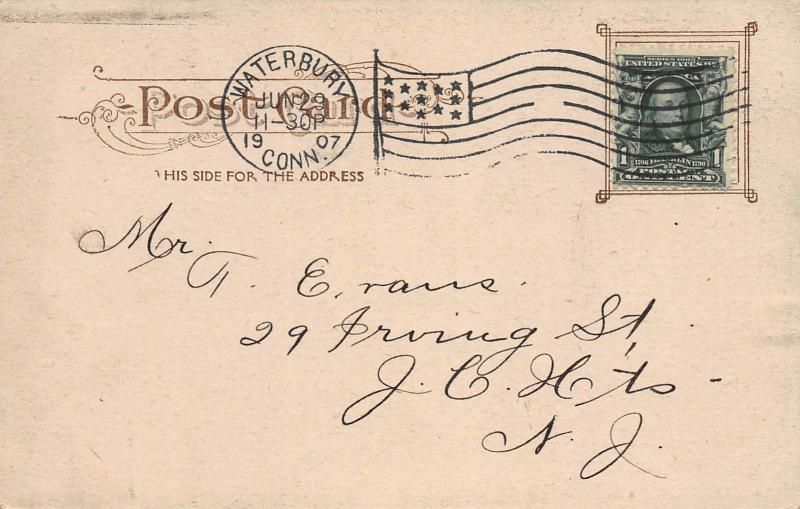 Post Card
WATERBURY
JUN 29
11-30P
19 07
CONN.
HIS SIDE FOR THE ADDRESS
SERIES 1902
UNITED STATES
1 1706 FRANKLIN 1790 1
POSTAGE
ONE CENT
Mr.
T. Evans.
29 Irving St,
J. C. Hts -
N. J.